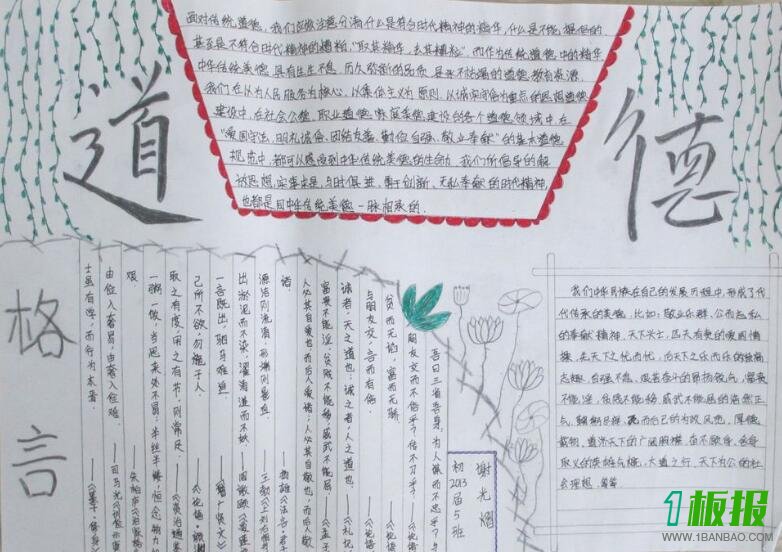 道
德
面对传统道德，我们应做注意分清什么是符合时代精神的精华，什么是不能提倡的
甚至是不符合时代精神的糟粕，"取其精华，去其糟粕"，而作为传统道德中的精华
中华传统美德，具有生生不息，历久弥新的品质，是永不枯竭的道德教育资源
我们在以为人民服务为核心，以集体主义为原则，以诚实守信为重点的思想道德
建设中，在社会公德，职业道德，家庭美德建设的各个道德领域中，在
"爱国守法，明礼诚信，团结友善，勤俭自强，敬业奉献"的基本道德
规范中，都可以感受到中华传统美德的生命力。我们所倡导的解
放思想，实事求是，与时俱进，勇于创新，无私奉献的时代精神，
也都是同中华传统美德一脉相承的。
格言
吾日三省吾身，为人谋而不忠乎？与
朋友交而不信乎？传不习乎？
——《论语
贫而无谄，富而无骄
——《论语
与朋友交，言而有信
——《论语
诚者，天之道也；诚之者，人之道也。
——《礼记
富贵不能淫，贫贱不能移，威武不能屈
——《孟子
人必其自爱也而后人爱诸；人必其自敬也，而后人敬
诸
——扬雄《法言·君子
源洁则流清，形端则影直
——王勃《上刘右相书
出淤泥而不染，濯清涟而不妖
——周敦颐《爱莲
一言既出，驷马难追
己所不欲，勿施于人。
——《论语·颜渊
取之有度，用之有节，则常足。
——《资治通鉴
一粥一饭，当思来处不易；半丝半缕，恒念物力维
艰
——朱柏庐《治家格
由俭入奢易，由奢入俭难。
——司马光《训俭示康
士虽有学，而行为本焉
——《墨子·修身
谢光熠
初2013届5班
我们中华民族在自己的发展历程中，形成了代
代传承的美德，比如，敬业乐群，公而忘私
的奉献精神，天下兴亡，匹夫有责的爱国情
操，先天下之忧而忧，后天下之乐而乐的崇高
志趣，自强不息，艰苦奋斗的昂扬锐气，富贵
不能淫，贫贱不能移，威武不能屈的浩然正
气，鞠躬尽瘁，死而后已的为政风范，厚德
载物，道济天下的广阔胸襟，奋不顾身，舍身
取义的英雄气概，大道之行，天下为公的社
会理想，等等
1板报
WWW.1BANBAO.COM